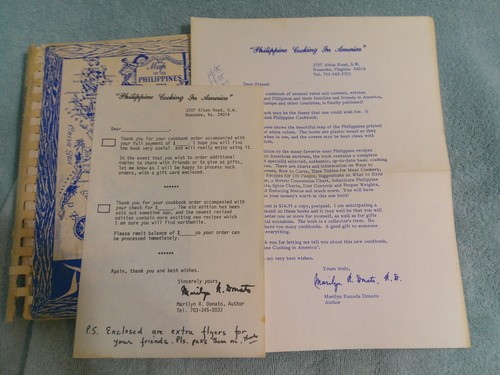 Map
OF THE
PHILIPPINES
"Philippine Cooking In America"
3707 Alton Road, S.W.
Roanoke, Va. 24014
Dear
Thank you for your cookbook order accompanied with
your full payment of $ . I hope you will find
the book very useful and will really enjoy using it.
In the event that you wish to order additional
copies to share with friends or to give as gifts,
let me know as I will be happy to process such
orders, with a gift card enclosed.
******
Thank you for your cookbook order accompanied with
your check for $ . The old edition has been
sold out sometime ago, and the newest revised
edition contains more exciting new recipes which
I am sure you will find worthwhile.
Please remit balance of $ so your order can
be processed immediately.
******
Again, thank you and best wishes.
Sincerely yours
Marilyn R. Donato
Marilyn R. Donato, Author
Tel. 703-345-2033
P.S. Enclosed are extra flyers for
your friends. Pls. pass them on. Thanks
"Philippine Cooking In America"
3707 Alton Road, S.W.
Roanoke, Virginia 24014
Tel. 703-345-2033
Dear Friend:
cookbook of unusual taste and content, written
Filipinos and their families and friends in America,
Europe and other countries, is finally published!
may be the finest that you could wish for. It
Philippine Cookbook.
cover shows the beautiful map of the Philippines printed
white colors. The books are plastic bound so they
when in use, and the covers may be kept clean with
cloth.
addition to the many favorite near Philippine recipes
American entrees, the book contains a complete
specially selected, authentic, up-to-date basic cooking
There are charts and information on Ways to
How to Carve, Time Tables for Meat Cookery,
Recipes for 100 People, Suggestions on What to Serve
a Metric Conversion Chart, Substitute Philippine
Spice Charts, Diet Controls and Proper Weights,
Reducing Menus and much more. You will have
your money's worth in this one book!
is $14.95 a copy, postpaid. I am anticipating a
demand on these books and it may well be that you will
order one or more for yourself, as well as for gifts
occasions. The book is a collector's item. No
have too many cookbooks. A good gift to someone
everything.
you for letting me tell you about this new cookbook,
Cooking in America".
my very best wishes.
Yours truly,
Marilyn R. Donato, R.D.
Marilyn Ranada Donato
Author